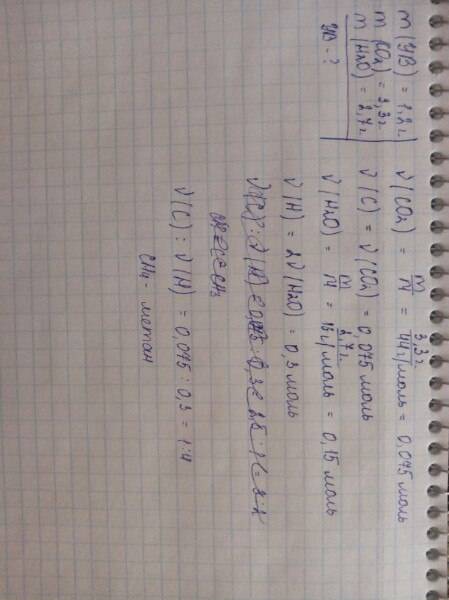 m(УВ) = 1,2г.
m(CO₂) = 3,3г.
m(H₂O) = 2,7г.
УВ - ?
ν(CO₂) = m/M = 3,3г/44г/моль = 0,075 моль
ν(C) = ν(CO₂) = 0,075 моль
ν(H₂O) = m/M = 2,7г./18г/моль = 0,15 моль
ν(H) = 2ν(H₂O) = 0,3 моль
ν(C) : ν(H) = 0,075 : 0,3 = 1:4
CH₄ - метан